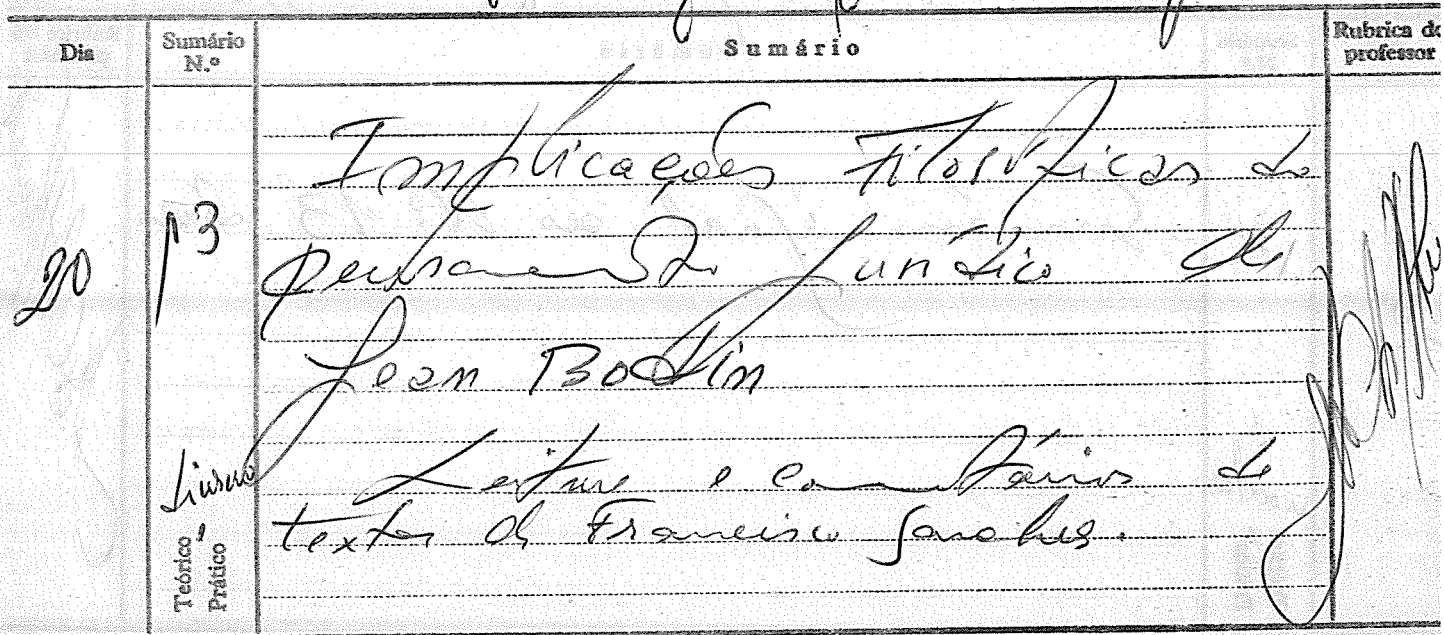 Dia
Sumário N.º
Sumário
Rubrica do professor
20
13
Implicações Filosóficas do
pensamento Jurídico de
Jean Bodin
Leitura e comentários de
textos de Francisco Sanches.
Teórico
Prático